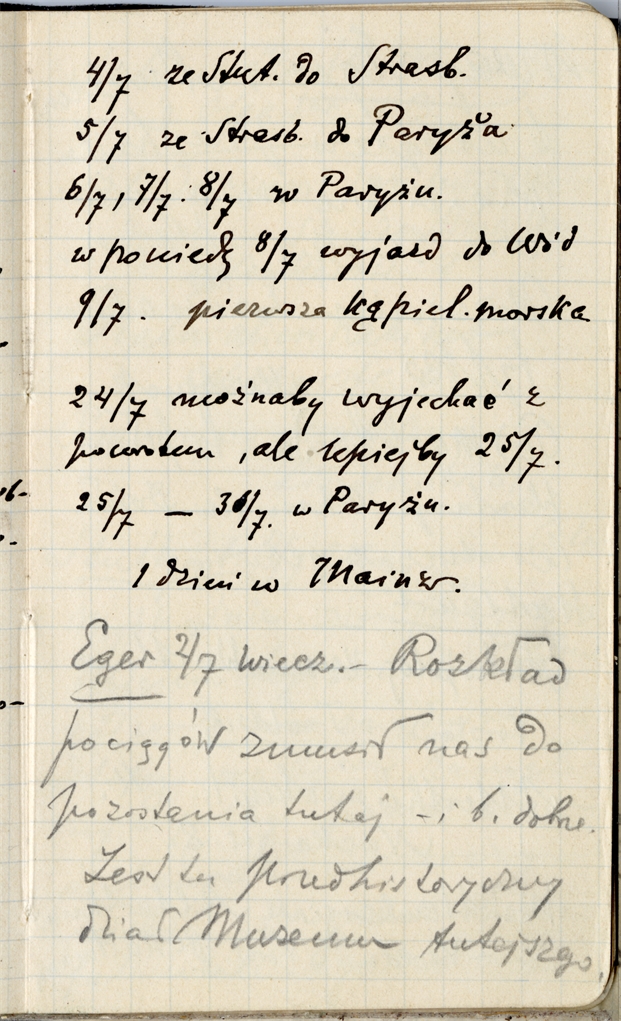 4/7 ze Stut. do Strasb.
5/7 ze Strasb. do Paryża
6/7, 7/7. 8/7 w Paryżu.
w poniedz 8/7 wyjazd do Wód
9/7. pierwsza kąpiel. morska
24/7 możnaby wyjechać z
powrotem, ale lepiejby 25/7.
25/7 — 30/7. w Paryżu.
1 dzień w Mainz.
Eger 2/7 wiecz. - Rozkład
pociągów zmusił nas do
pozostania tutaj - i b. dobrze.
Jest tu przedhistoryczny
dział Muzeum tutejszego.